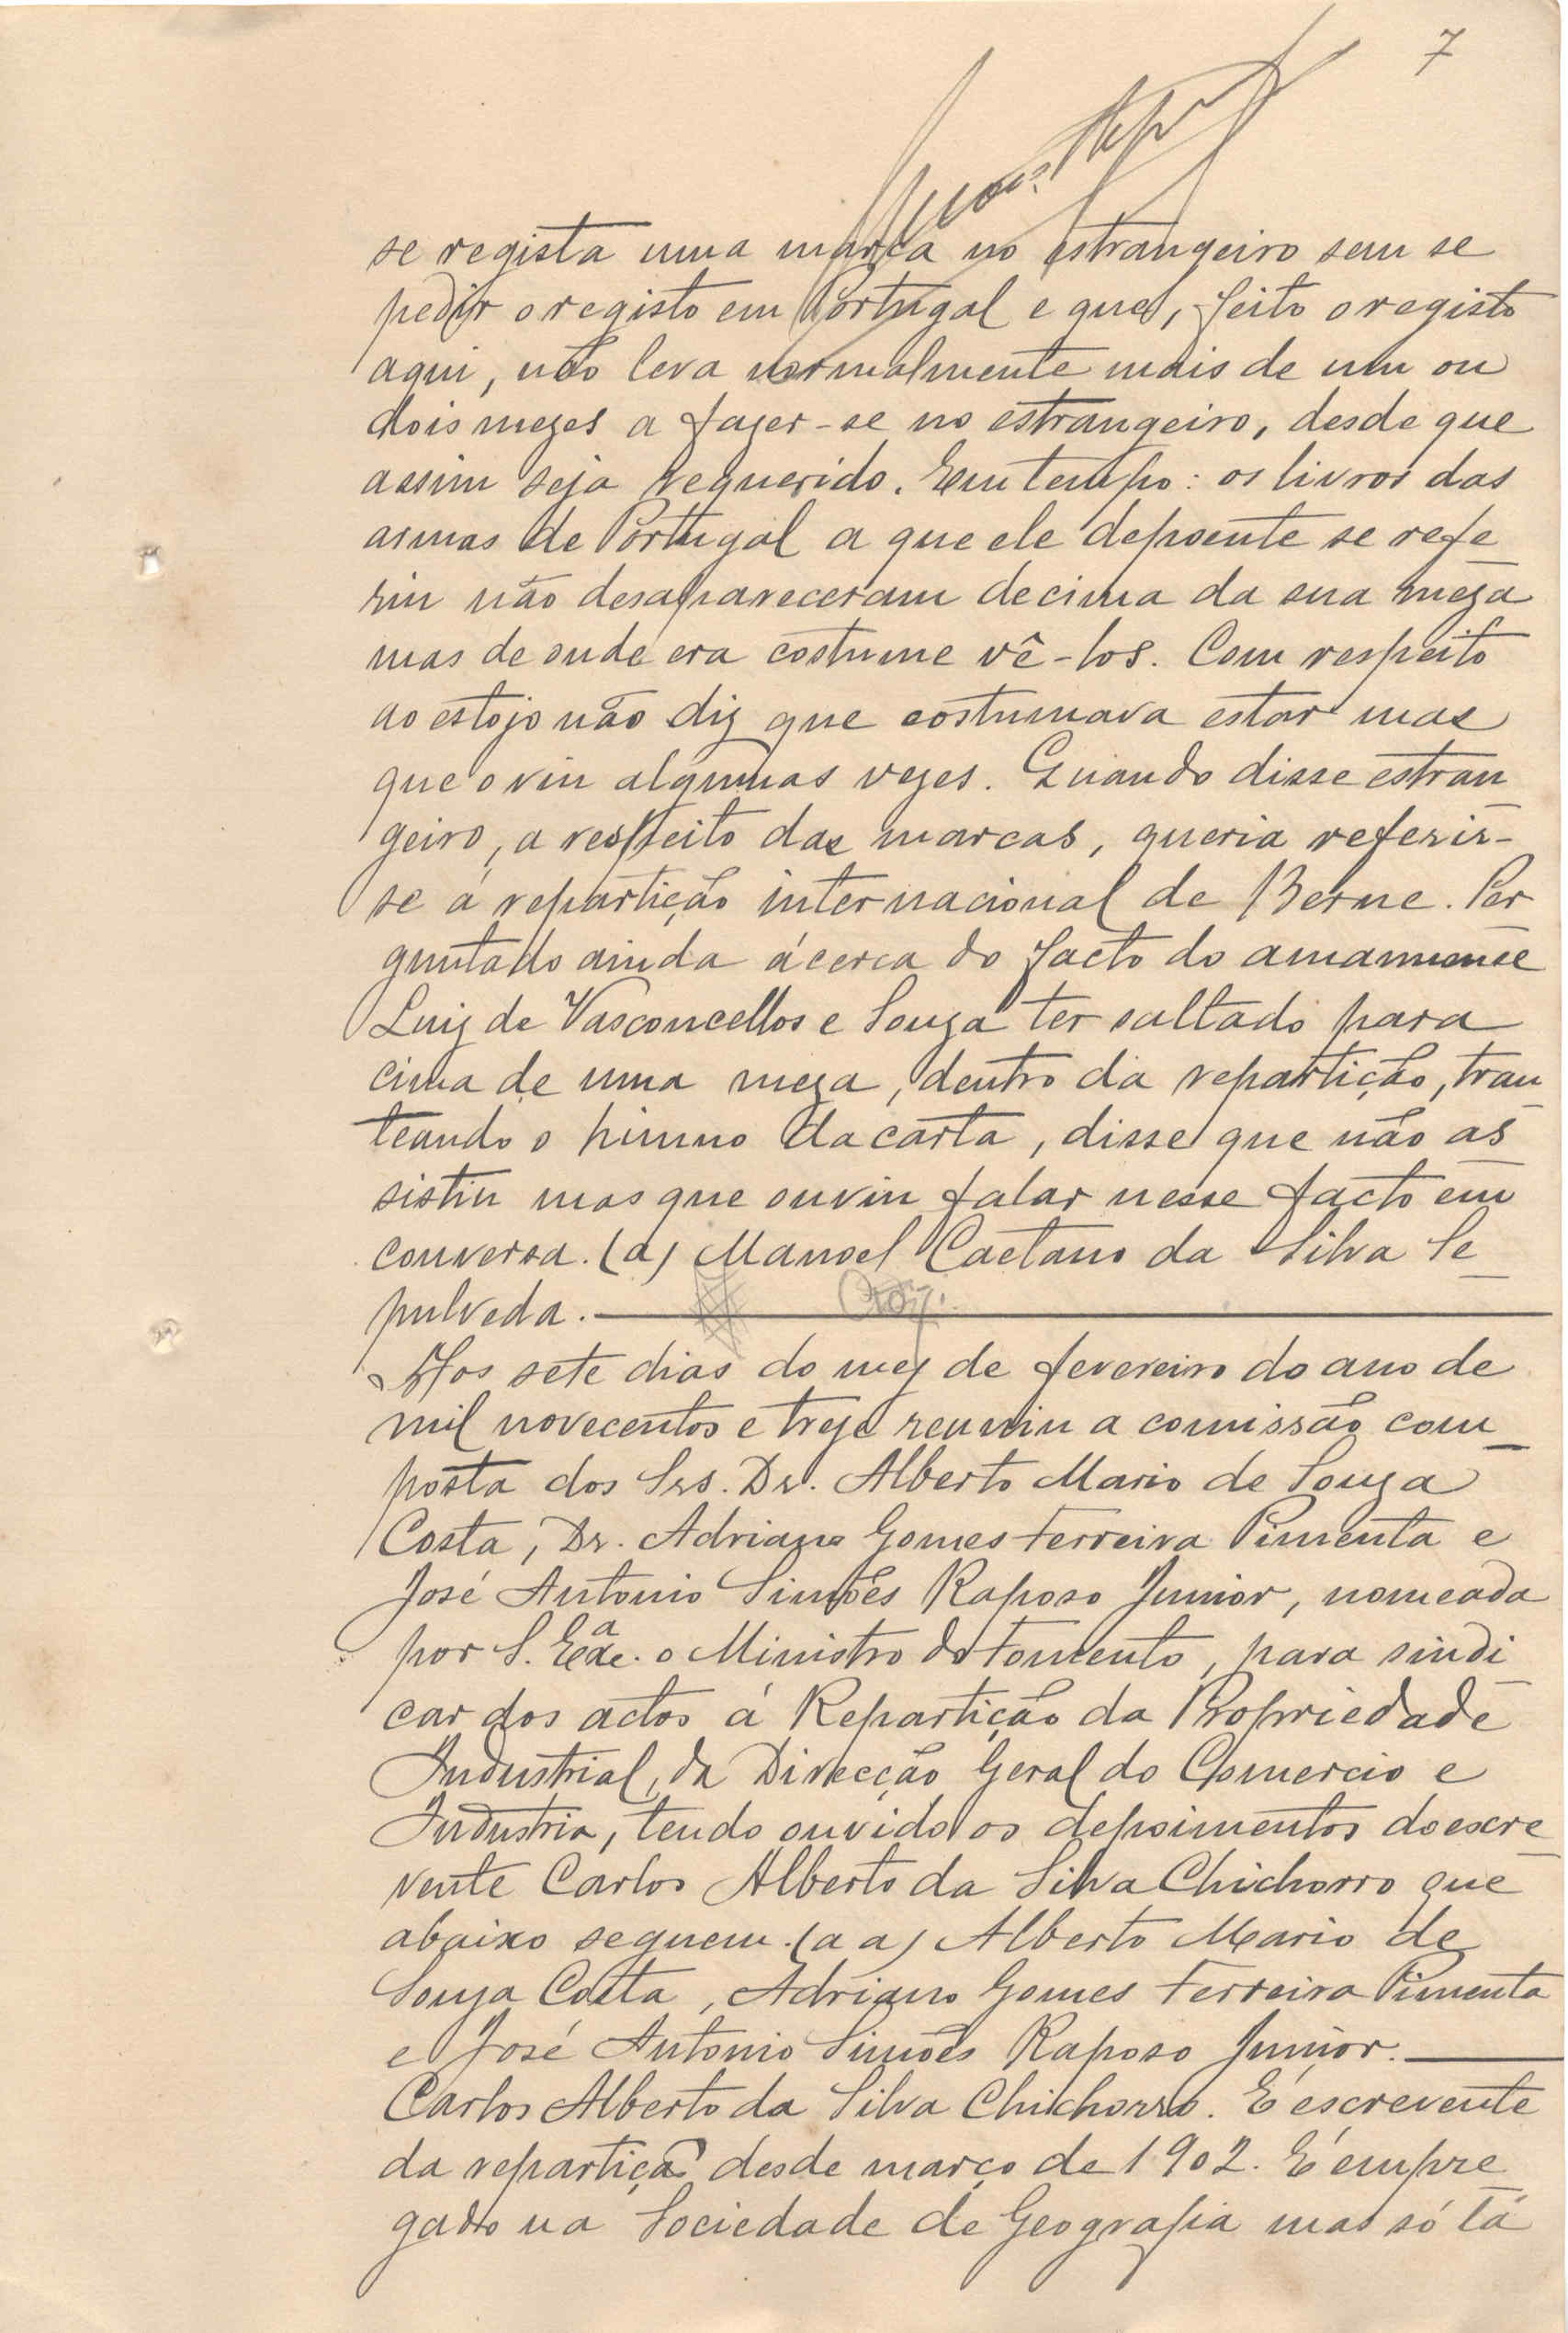 7
se regista uma marca no estrangeiro sem se
pedir o registo em Portugal e que, feito o registo
aqui, não leva normalmente mais de um ou
dois mezes a fazer-se no estrangeiro, desde que
assim seja requerido. Em tempo: os livros das
armas de Portugal a que ele depoente se refe
riu não desapareceram de cima da sua meza
mas de onde era costume vê-los. Com respeito
ao estojo não diz que costumava estar mas
que o viu algumas vezes. Quando disse estran
geiro, a respeito das marcas, queria referir-
se á repartição internacional de Berne. Per
guntado ainda ácerca do facto do amanuense
Luiz de Vasconcellos e Souza ter saltado para
cima de uma meza, dentro da repartição, trau
teando o himno da carta, disse que não as
sistiu mas que ouviu falar nesse facto em
conversa. (a) Manoel Caetano da Silva Se
pulveda.
Aos sete dias do mez de fevereiro do ano de
mil novecentos e treze reuniu a comissão com
posta dos Srs. Dr. Alberto Mario de Souza
Costa, Dr. Adriano Gomes Ferreira Pimenta e
José Antonio Simões Raposo Junior, nomeada
por S. Exª. o Ministro do Fomento, para sindi
car dos actos á Repartição da Propriedade
Industrial, da Direcção Geral do Comercio e
Industria, tendo ouvido os depoimentos do escre
vente Carlos Alberto da Silva Chichorro que
abaixo seguem. (a a) Alberto Mario de
Souza Costa, Adriano Gomes Ferreira Pimenta
e José Antonio Simões Raposo Junior.
Carlos Alberto da Silva Chichorro. É escrevente
da repartição desde março de 1902. É empre
gado na Sociedade de Geografia mas só lá